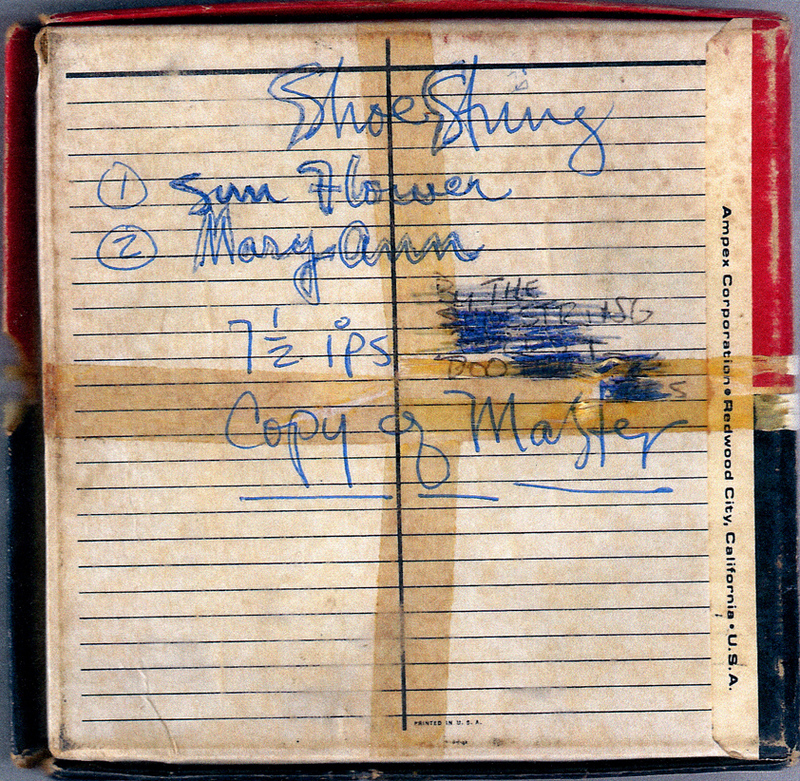 ShoeString
① Sun Flower
② Mary Ann
7 1/2 ips
THE
Copy of Master
PRINTED IN U. S. A.
Ampex Corporation • Redwood City, California • U.S.A.